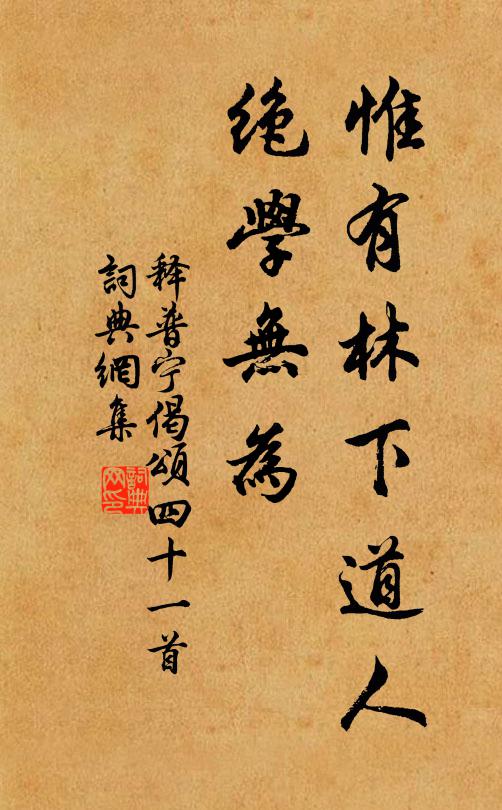 惟有林下道人
絶學無為
释普宁偈頌四十一首
詞典網集